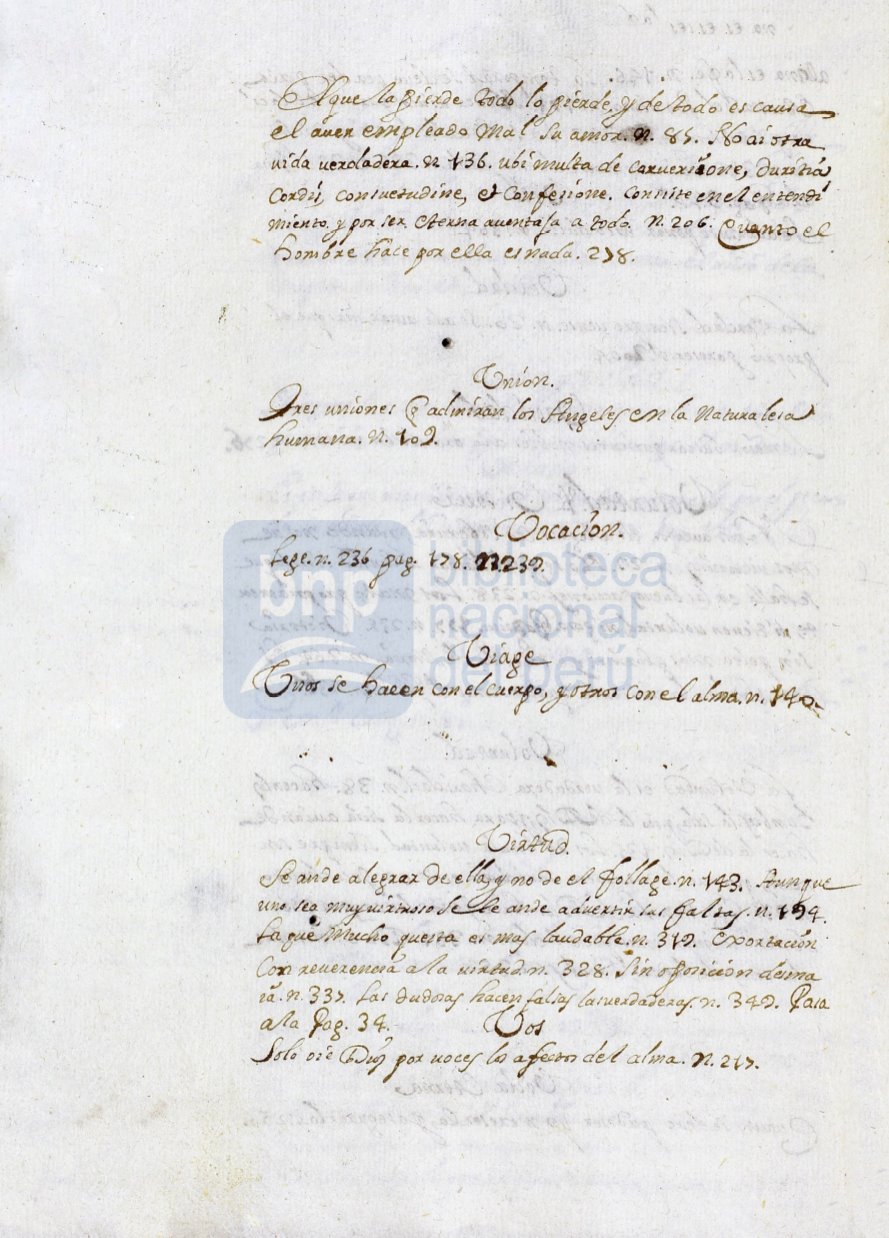 El que la pierde todo lo pierde, y de todo es causa
el auer empleado mal su amor. n. 85. No ai otra
uida uerdadera. n 136. ubi multa de conuersione, duritia
Cordis, consuetudine, et Confesione. Consiste en el entendi
miento, y por ser eterna auentaja a todo. n. 206. Quanto el
hombre hace por ella es nada. 278.
Union.
Tres uniones q admiran los Angeles en la naturaleza
humana. n. 109.
Vocacion.
Lege. n. 236 pag. 178. n 239.
Viage
Unos se hacen con el cuerpo, y otros con el alma. n. 140.
Virtud.
Se ande alegrar de ella, y no de el follage. n. 143. Aunque
uno sea muy uirtuoso se le ande aduertir sus faltas. n. 194.
La que mucho questa es mas laudable. n. 319. Exortacion
Con reuerencia a la uirtud. n. 328. Sin oposicion desma
ia. n. 337. Las dudosas hacen falsas las uerdaderas. n. 349. Pasa
a la Pag. 34.
Vos
Solo oie Dios por uoces los afectos del alma. n. 217.
bnp
biblioteca
nacional
del perú